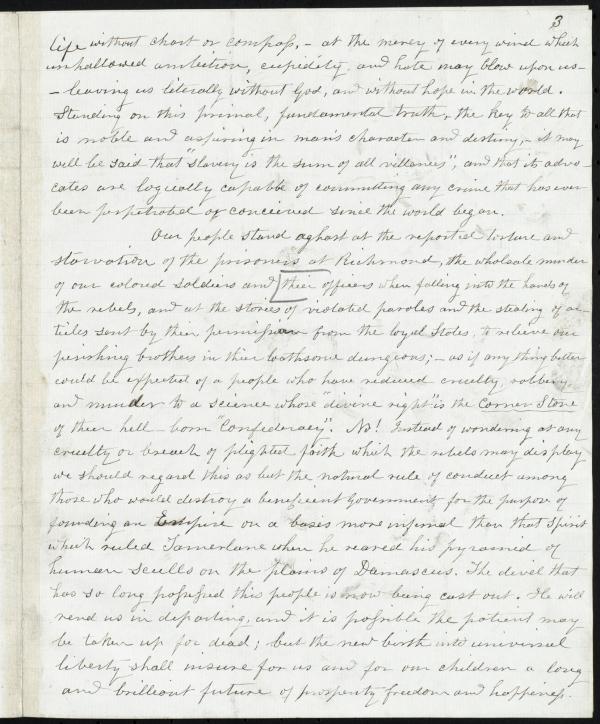 3
life without chart or compass, - at the mercy of every wind which
unhallowed ambition, cupidity, and hate may blow upon us -
- leaving us literally without God, and without hope in the world.
Standing on this primal, fundamental truth, the key to all that
is noble and aspiring in man's character and destiny, - it may
well be said that "slavery is the sum of all villanies", and that its advo-
cates are logically capable of committing any crime that has ever
been perpetrated or conceived since the world began.
Our people stand aghast at the reported torture and
starvation of the prisoners at Richmond, the wholesale murder
of our colored soldiers and [their officers when falling into the hands of
the rebels, and at the stories of violated paroles and the stealing of ar-
ticles sent by their permission from the loyal States, to relieve our
perishing brothers in their loathsome dungeons; - as if any thing better
could be expected of a people who have reduced cruelty, robbery,
and murder to a science whose "divine right" is the Corner Stone
of their hell-born "Confederacy". No! Instead of wondering at any
cruelty or breach of plighted faith which the rebels may display
we should regard this as but the natural rule of conduct among
those who would destroy a beneficent Government for the purpose of
founding an Empire on a basis more infernal than that Spirit
which ruled Tamerlane when he reared his pyramid of
human sculls on the plains of Damascus. The devel that
has so long possessed this people is now being cast out. He will
rend us in departing, and it is possible the patient may
be taken up for dead; but the new birth into universal
liberty shall insure for us and for our children a long
and brilliant future of prosperity freedom and happiness.